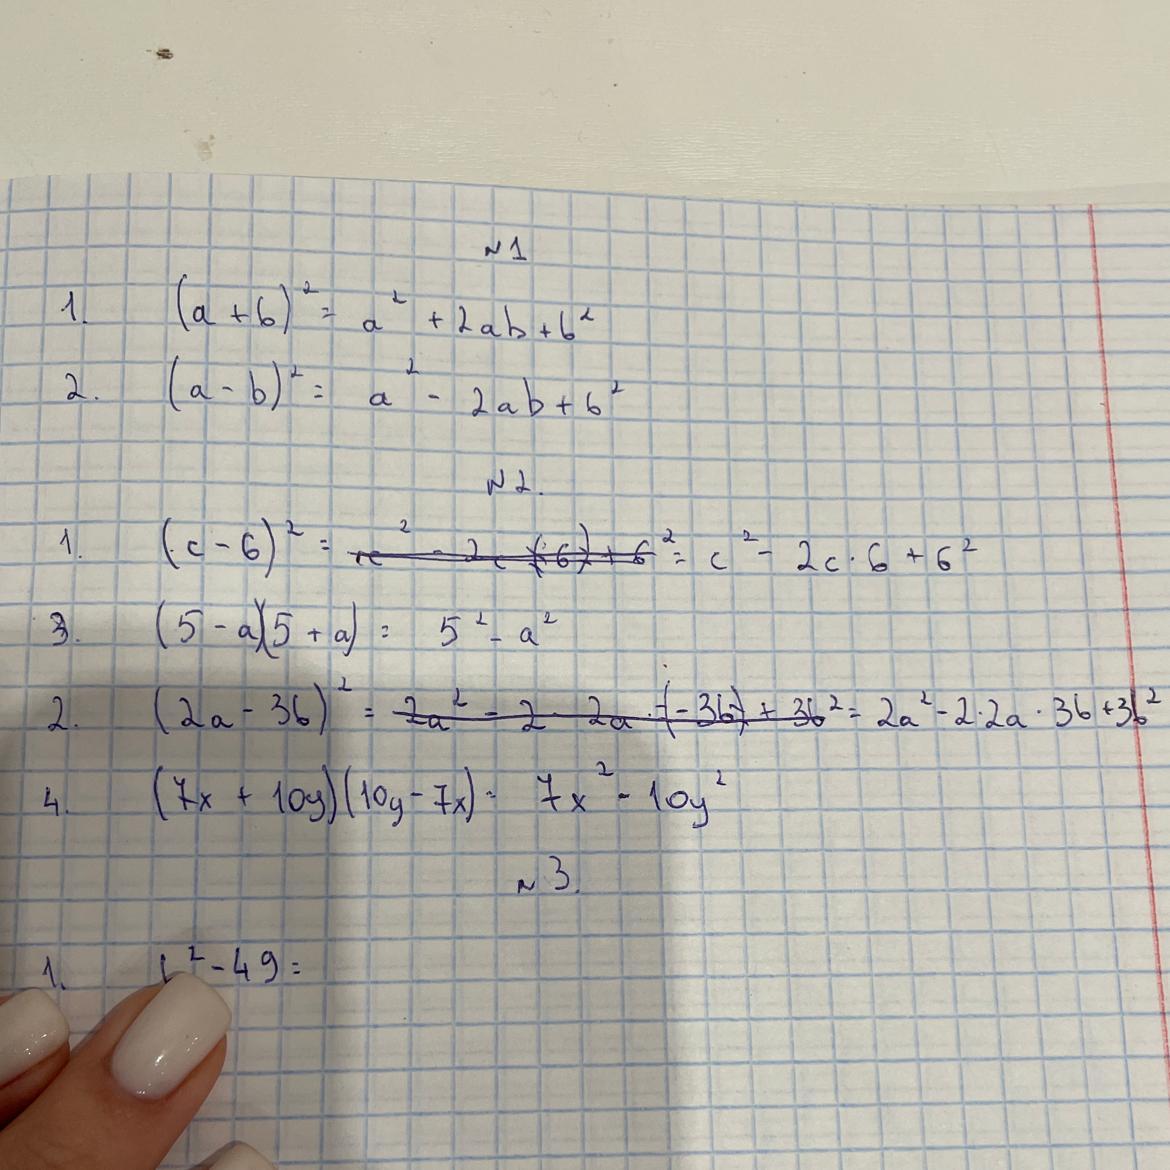 №1
1. (a + b)² = a² + 2ab + b²
2. (a - b)² = a² - 2ab + b²
№2.
1. (c - 6)² = c² - 2c (·6) + 6² = c² - 2c · 6 + 6²
3. (5 - a)(5 + a) = 5² - a²
2. (2a - 3b)² = 2a² - 2 · 2a · (-3b) + 3b² = 2a² - 2 · 2a · 3b + 3b²
4. (7x + 10y)(10y - 7x) = 7x² - 10y²
№3.
1. ² - 49 =